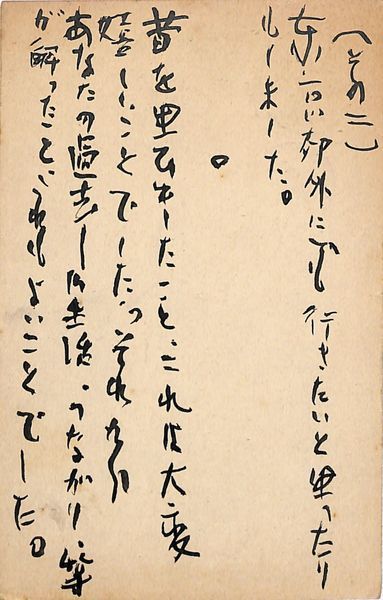 (その二)
東京郊外にでも行きたいと思つたり
しました。
○
昔を思ひ出したこと、これは大変
嬉しいことでした。それから
あなたの過去の生活、つながり、等
が解つたこと、これもよいことでした。